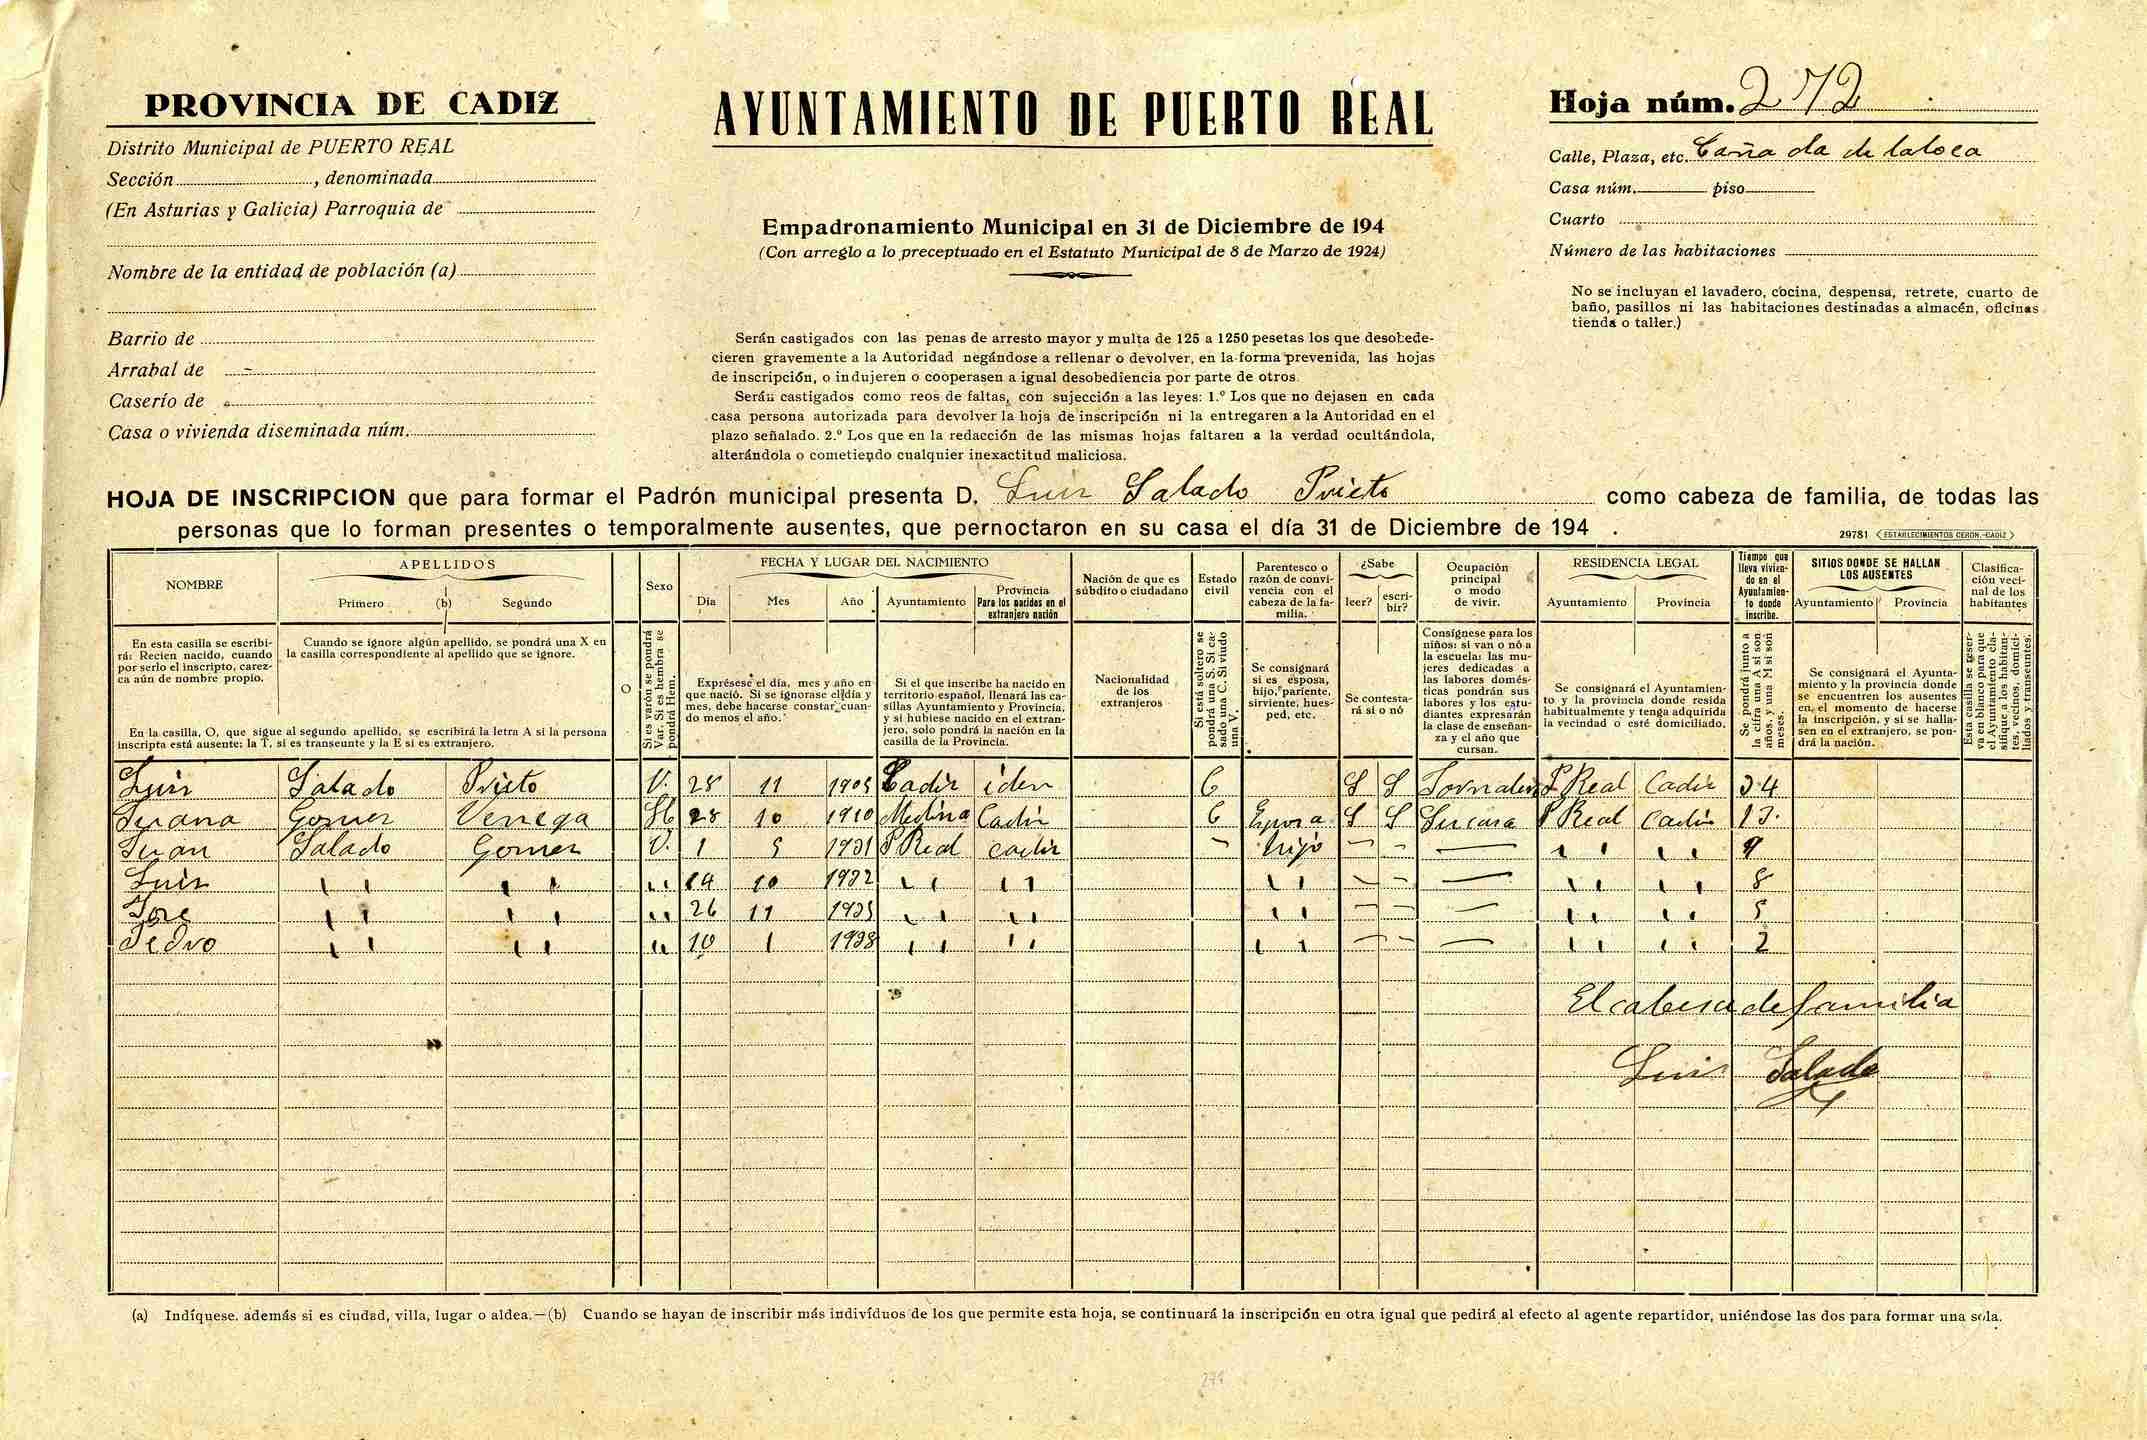 PROVINCIA DE CADIZ
Distrito Municipal de PUERTO REAL
Sección , denominada
(En Asturias y Galicia) Parroquia de
Nombre de la entidad de población (a)
Barrio de
Arrabal de
Caserío de
Casa o vivienda diseminada núm.
AYUNTAMIENTO DE PUERTO REAL
Empadronamiento Municipal en 31 de Diciembre de 194
(Con arreglo a lo preceptuado en el Estatuto Municipal de 8 de Marzo de 1924)
Serán castigados con las penas de arresto mayor y multa de 125 a 1250 pesetas los que desobede-
cieren gravemente a la Autoridad negándose a rellenar o devolver, en la forma prevenida, las hojas
de inscripción, o indujeren o cooperasen a igual desobediencia por parte de otros.
Serán castigados como reos de faltas, con sujección a las leyes: 1.º Los que no dejasen en cada
casa persona autorizada para devolver la hoja de inscripción ni la entregaren a la Autoridad en el
plazo señalado. 2.º Los que en la redacción de las mismas hojas faltaren a la verdad ocultándola,
alterándola o cometiendo cualquier inexactitud maliciosa.
Hoja núm. 272
Calle, Plaza, etc. Cañada de la loca
Casa núm. piso
Cuarto
Número de las habitaciones
No se incluyan el lavadero, cocina, despensa, retrete, cuarto de
baño, pasillos ni las habitaciones destinadas a almacén, oficinas
tienda o taller.)
HOJA DE INSCRIPCION que para formar el Padrón municipal presenta D. Luis Salado Prieto como cabeza de familia, de todas las
personas que lo forman presentes o temporalmente ausentes, que pernoctaron en su casa el día 31 de Diciembre de 194 .
29781 ESTABLECIMIENTOS CERON.-CADIZ
NOMBRE
APELLIDOS
Primero (b) Segundo
O
Sexo
FECHA Y LUGAR DEL NACIMIENTO
Día Mes Año Ayuntamiento
Provincia
Para los nacidos en el
extranjero nación
Nación de que es
súbdito o ciudadano
Estado
civil
Parentesco o
razón de convi-
vencia con el
cabeza de la fa-
milia.
¿Sabe
leer? escri-
bir?
Ocupación
principal
o modo
de vivir.
RESIDENCIA LEGAL
Ayuntamiento Provincia
Tiempo que
lleva vivien-
do en el
Ayuntamien-
to donde
inscribe.
SITIOS DONDE SE HALLAN
LOS AUSENTES
Ayuntamiento Provincia
Clasifica-
ción veci-
nal de los
habitantes
En esta casilla se escribi-
rá: Recien nacido, cuando
por serlo el inscripto, carez-
ca aún de nombre propio.
Cuando se ignore algún apellido, se pondrá una X en
la casilla correspondiente al apellido que se ignore.
En la casilla, O, que sigue al segundo apellido, se escribirá la letra A si la persona
inscripta está ausente; la T, si es transeunte y la E si es extranjero.
Si es varón se pondrá
Var. Si es hembra se
pondrá Hem.
Exprésese el día, mes y año en
que nació. Si se ignorase el día y
mes, debe hacerse constar cuan-
do menos el año.
Si el que inscribe ha nacido en
territorio español, llenará las ca-
sillas Ayuntamiento y Provincia,
y si hubiese nacido en el extran-
jero, solo pondrá la nación en la
casilla de la Provincia.
Nacionalidad
de los
extranjeros
Si está soltero se
pondrá una S. Si ca-
sado una C. Si viudo
una V.
Se consignará
si es esposa,
hijo, pariente,
sirviente, hues-
ped, etc.
Se contesta-
rá si o nó
Consígnese para los
niños: si van o nó a
la escuela: las mu-
jeres dedicadas a
las labores domés-
ticas pondrán sus
labores y los estu-
diantes expresarán
la clase de enseñan-
za y el año que
cursan.
Se consignará el Ayuntamien-
to y la provincia donde resida
habitualmente y tenga adquirida
la vecindad o esté domiciliado.
Se pondrá junto a
la cifra una A si son
años, y una M si son
meses.
Se consignará el Ayunta-
miento y la provincia donde
se encuentren los ausentes
en el momento de hacerse
la inscripción, y si se halla-
sen en el extranjero, se pon-
drá la nación.
Esta casilla se reser-
va en blanco para que
el Ayuntamiento cla-
sifique a los habitan-
tes, vecinos, domici-
liados y transeuntes.
Luis Salado Prieto V. 28 11 1905 Cadiz iden C S S Jornalero P Real Cadiz 34
Juana Gomez Venega H 28 10 1910 Medina Cadiz C Esposa S S Su casa P Real Cadiz 13.
Juan Salado Gomez V. 1 5 1931 P Real Cadiz - hijo - - — " " " " 9
Luis " " " " " 14 10 1932 " " " " " " - - — " " " " 8
Jose " " " " " 26 11 1935 " " " " " " - - — " " " " 5
Pedro " " " " " 10 1 1938 " " " " " " - - — " " " " 2
El cabesa de familia
Luis Salado
(a) Indíquese. además si es ciudad, villa, lugar o aldea.—(b) Cuando se hayan de inscribir más indivíduos de los que permite esta hoja, se continuará la inscripción en otra igual que pedirá al efecto al agente repartidor, uniéndose las dos para formar una sola.